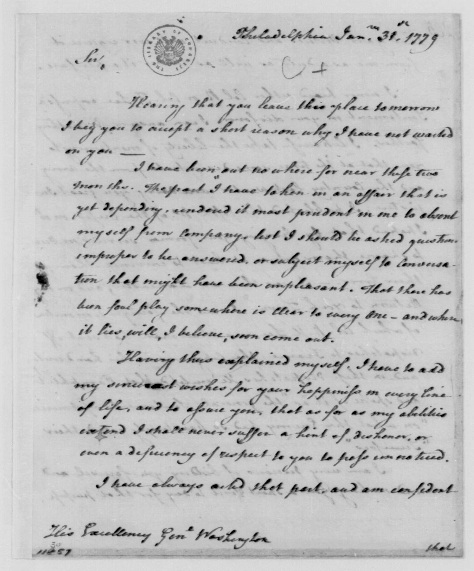 Philadelphia Jany. 31st. 1779
THE LIBRARY OF CONGRESS
Sir,
Hearing that you leave this place tomorrow
I beg you to accept a short reason why I have not waited
on you —
I have been out no where for near these two
months. The part I have taken in an affair that is
yet depending, rendered it most prudent in me to absent
myself from company, lest I should be asked questions
improper to be answered, or subject myself to conversa
tion that might have been unpleasant. That there has
been foul play somewhere is clear to every one – and where
it lies, will, I believe, soon come out.
Having thus explained myself, I have to add
my sincerest wishes for your happiness in every line
of life, and to assure you, that as far as my abilities
extend I shall never suffer a hint of dishonor, or
even a deficiency of respect to you to pass unnoticed.
I have always acted that part, and am confident
that
His Excellency Genl. Washington